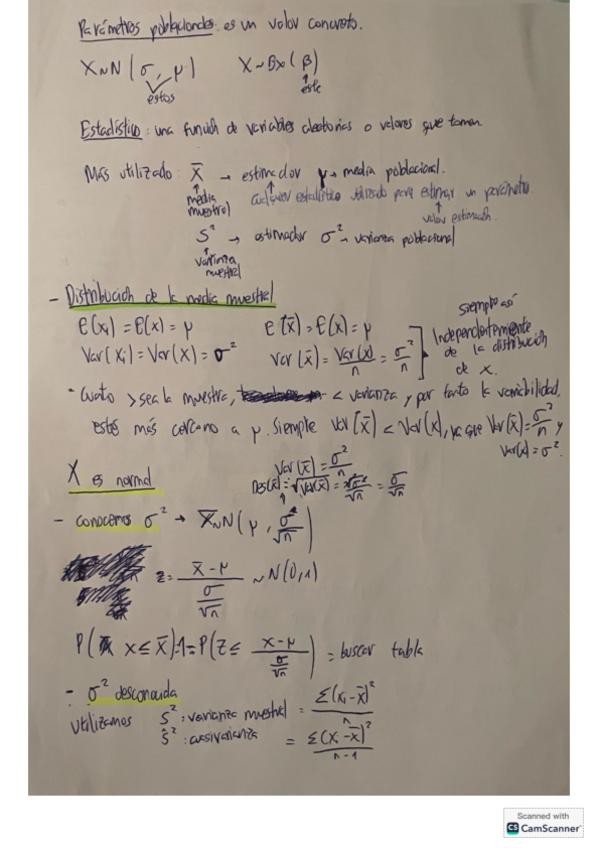 Parámetros poblacionales: es un valor concreto.
X~N(σ, μ) X~Exp(β)
estos este
Estadístico: una función de variables aleatorias o valores que toman
Más utilizado: X̄ → estimador μ → media poblacional.
media muestral cualquier estadístico utilizado para estimar un parámetro.
valor estimación.
S² → estimador σ² → varianza poblacional
varianza muestral
- Distribución de la media muestral
E(xi) = E(x) = μ E(x̄) = E(x) = μ
Var(xi) = Var(x) = σ² Var(x̄) = Var(x)/n = σ²/n
Siempre así independientemente de la distribución de x.
· Cuanto > sea la muestra, < varianza y por tanto la variabilidad,
está más cercano a μ. Siempre Var(x̄) < Var(x), ya que Var(x̄) = σ²/n y
Var(x) = σ².
X es normal
Var(x̄) = σ²/n
Des(x̄) = √Var(x̄) = √σ²/√n = σ/√n
- conocemos σ² → X̄~N(μ, σ/√n)
z = x̄-μ / σ/√n ~ N(0,1)
P(x ≤ x̄) = P(Z ≤ x-μ / σ/√n) = buscar tabla
- σ² desconocida
utilizamos S²: varianza muestral = Σ(xi-x̄)²/n
Ŝ²: cuasivarianza = Σ(xi-x̄)²/n-1
Scanned with
CS CamScanner